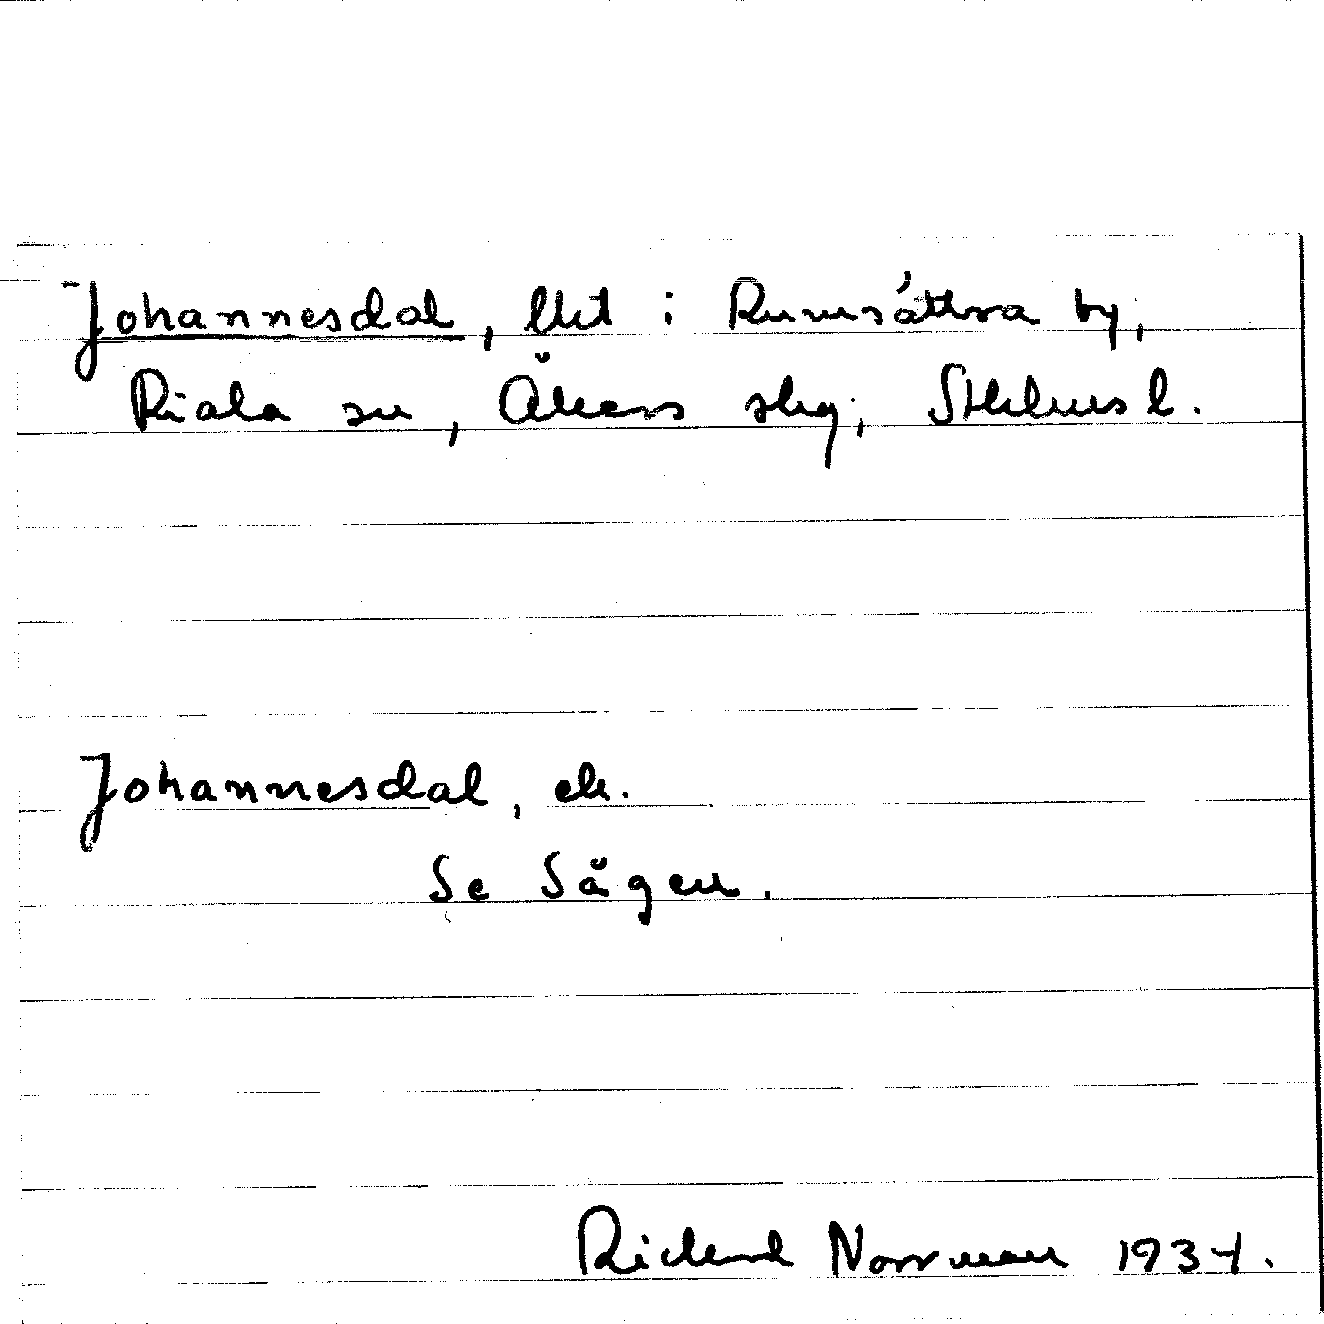 Johannesdal, lht i Rumsättra by,
Riala sn, Åkers skg, Sthlms l.
Johannesdal, ek.
Se Sågen.
Rickard Norrman 1934.